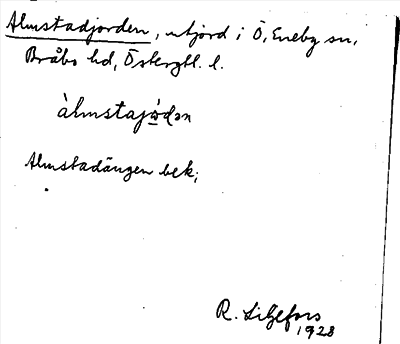 Almstadjorden, utjord i Ö. Eneby sn,
Bråbo hd, Östergtl. l.
àlmstajo̱dən
Almstadängen bek;
R. Liljefors
1928